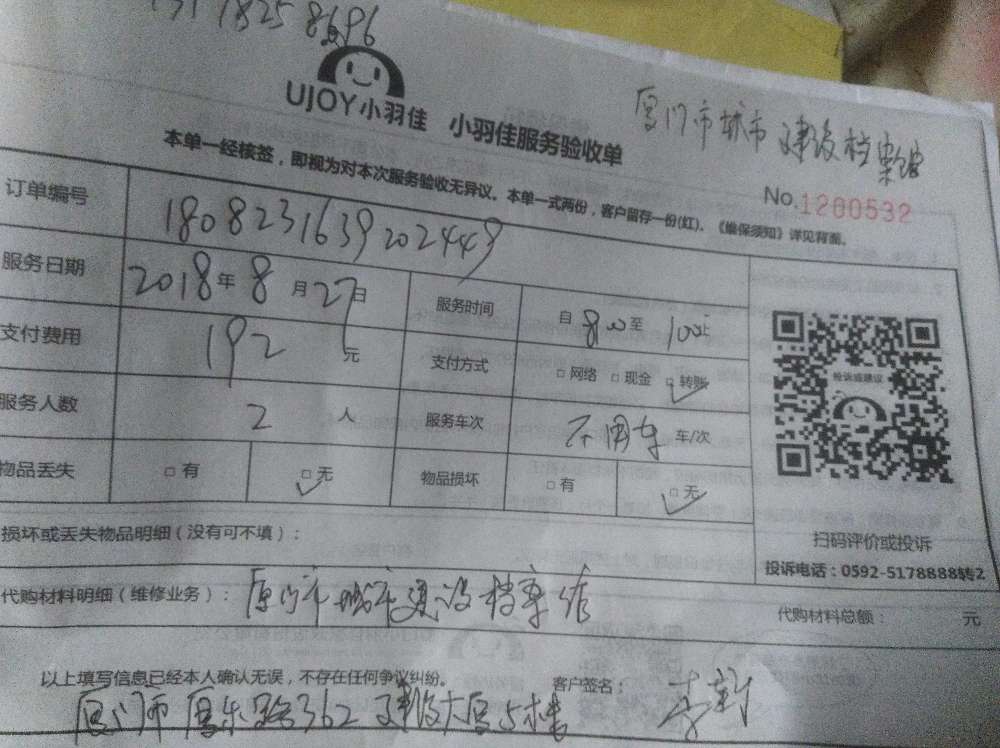 UJOY小羽佳 小羽佳服务验收单
厦门市城市建设档案馆
本单一经核签，即视为对本次服务验收无异议。本单一式两份，客户留存一份(红)。《维保须知》详见背面。
No.1200532
订单编号 180823163920244
服务日期 2018年8月27日 服务时间 自8:00至
支付费用 192元 支付方式 □网络 □现金 □转账
服务人数 2人 服务车次 不用车 车/次
物品丢失 □有 □无 物品损坏 □有 □无
投诉或建议
扫码评价或投诉
损坏或丢失物品明细（没有可不填）：
投诉电话：0592-5178888转2
代购材料明细（维修业务）： 厦门市城市建设档案馆 代购材料总额： 元
以上填写信息已经本人确认无误，不存在任何争议纠纷。 客户签名：
厦门市 362 建设大厦5楼